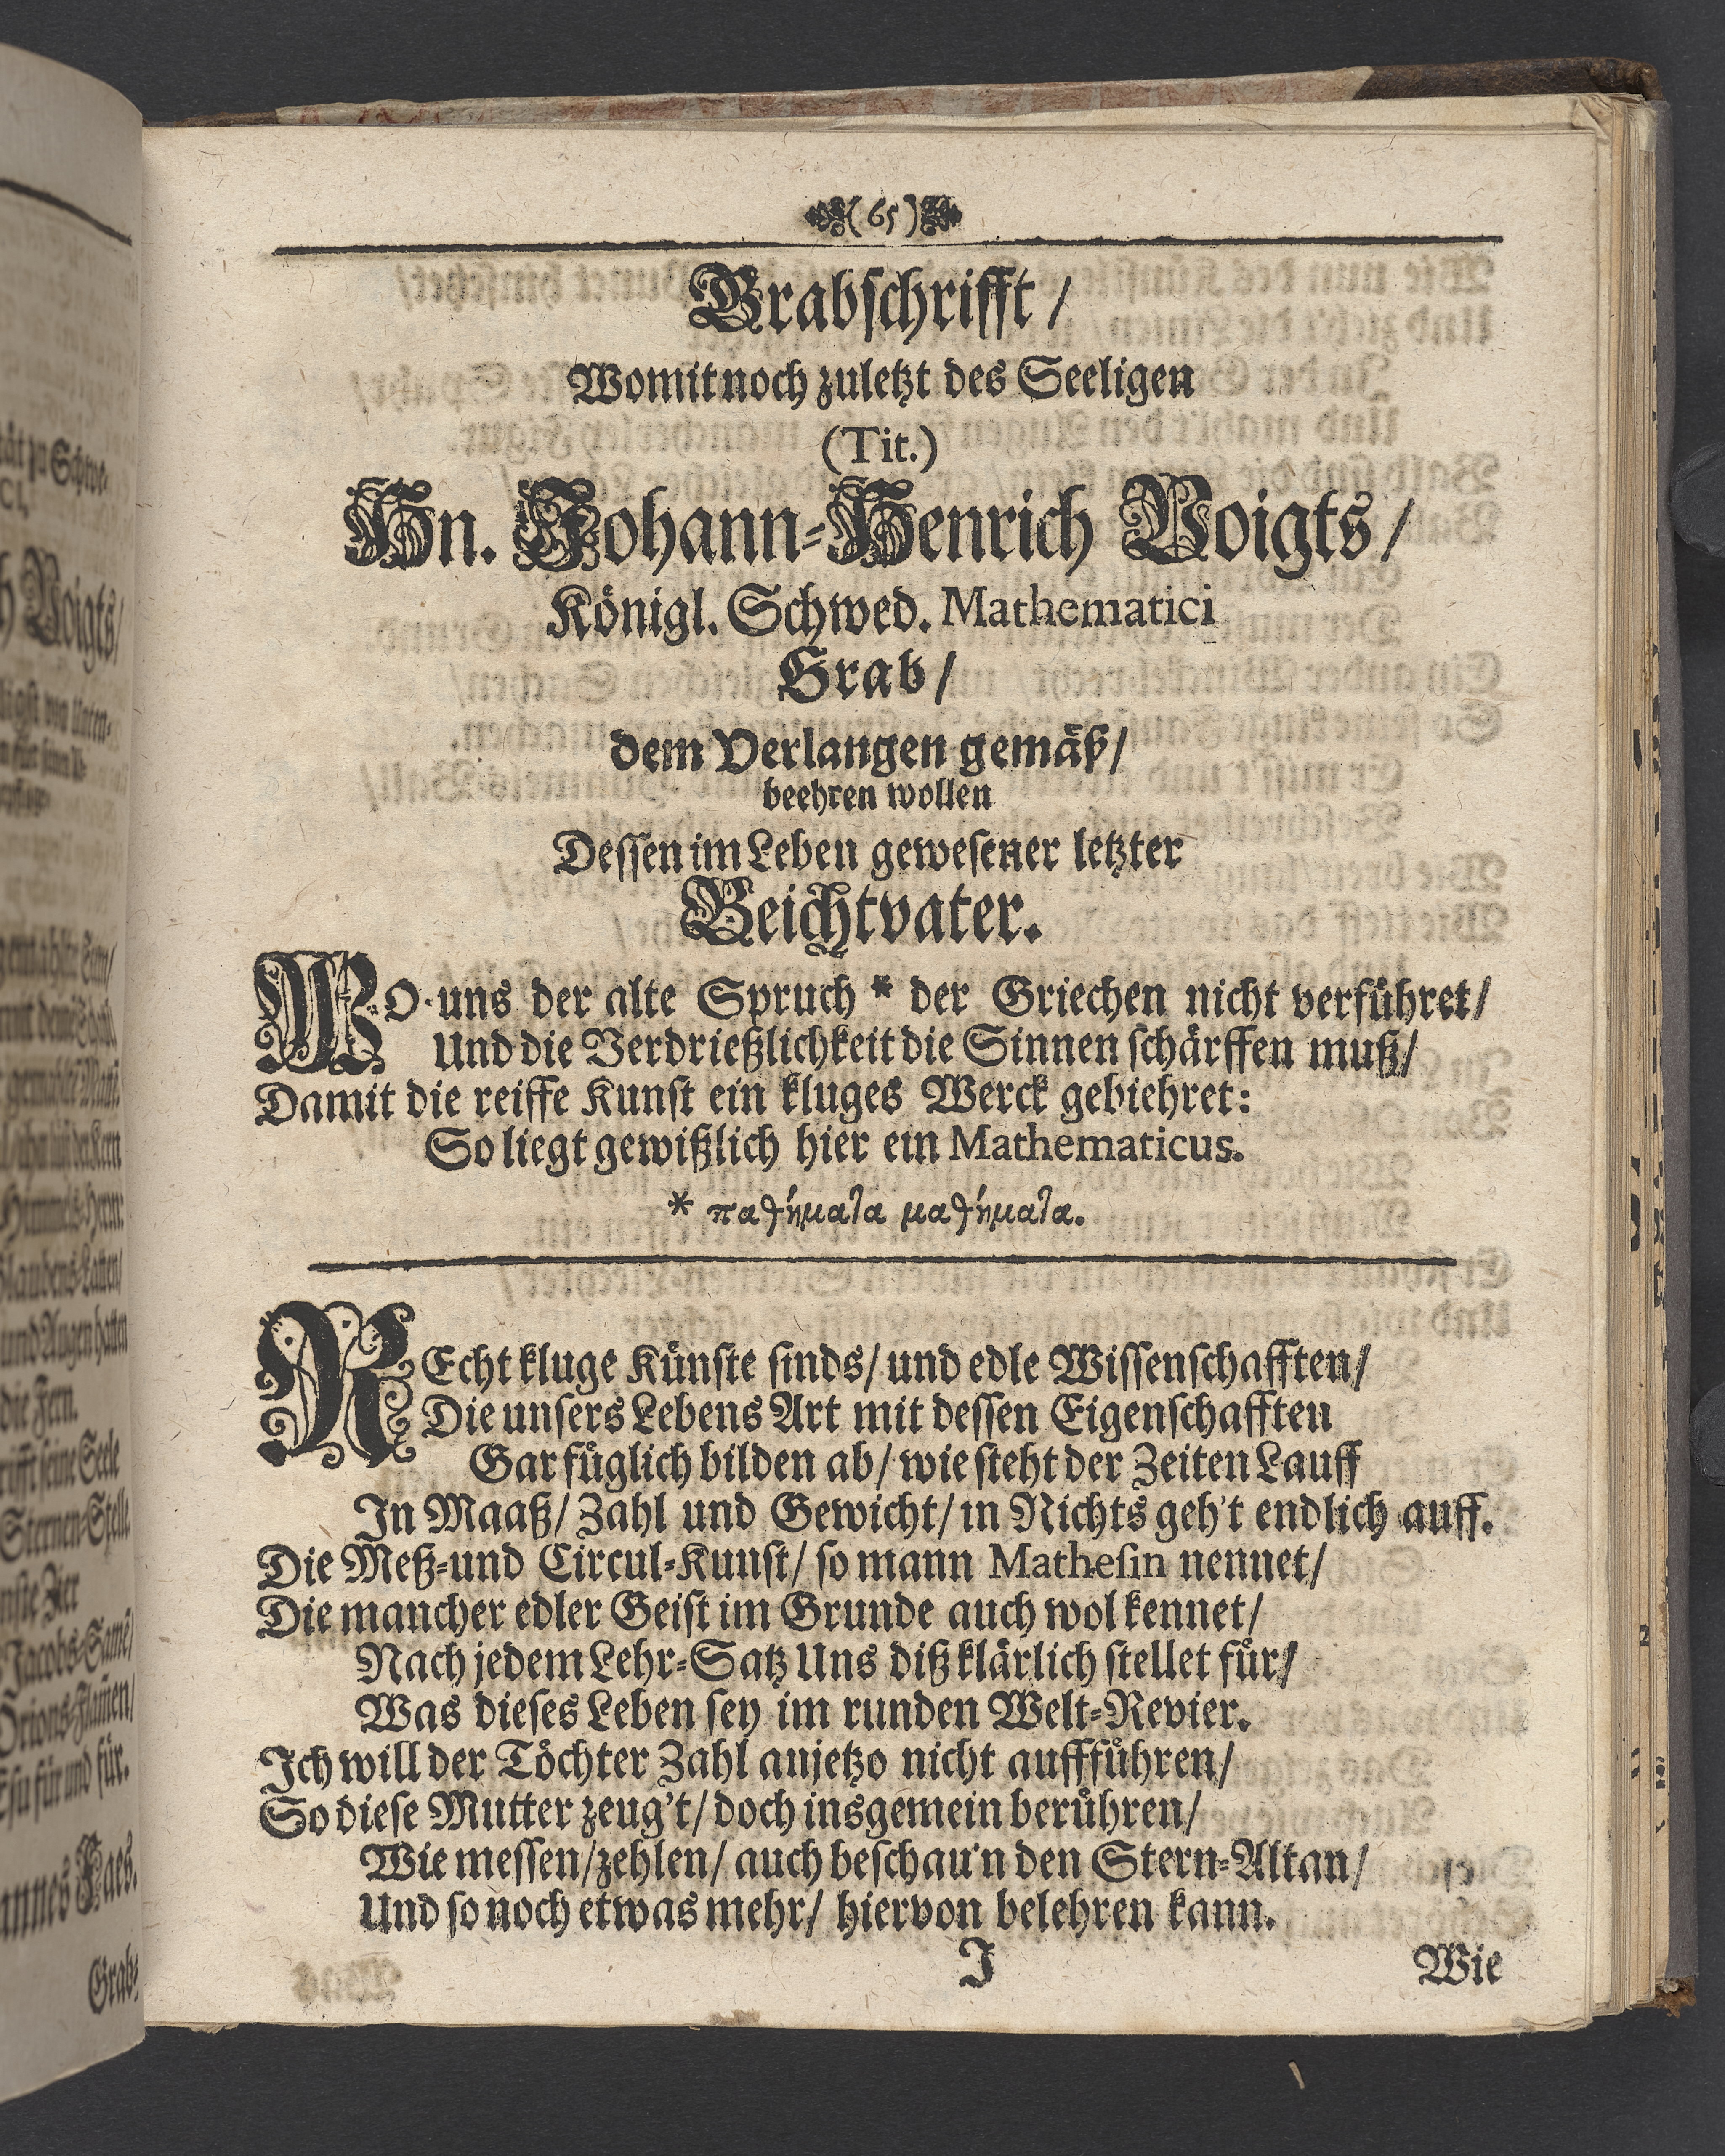 (65)
Grabschrifft/
Womit noch zuletzt des Seeligen
(Tit.)
Hn. Johann-Henrich Voigts/
Königl. Schwed. Mathematici
Grab/
dem Verlangen gemäß/
beehren wollen
Dessen im Leben gewesener letzter
Beichtvater.
WO uns der alte Spruch * der Griechen nicht verführet/
Und die Verdrießlichkeit die Sinnen schärffen muß/
Damit die reiffe Kunst ein kluges Werck gebiehret:
So liegt gewißlich hier ein Mathematicus.
* παθήματα μαθήματα.
REcht kluge Künste sinds/ und edle Wissenschafften/
Die unsers Lebens Art mit dessen Eigenschafften
Gar füglich bilden ab/ wie steht der Zeiten Lauff
In Maaß/ Zahl und Gewicht/ in Nichts geh't endlich auff.
Die Meß-und Circul-Kunst/ so mann Mathesin nennet/
Die mancher edler Geist im Grunde auch wol kennet/
Nach jedem Lehr-Satz Uns diß klärlich stellet für/
Was dieses Leben sey im runden Welt-Revier.
Ich will der Töchter Zahl anjetzo nicht auffführen/
So diese Mutter zeug't/ doch insgemein berühren/
Wie messen/ zehlen/ auch beschau'n den Stern-Altan/
Und so noch etwas mehr/ hiervon belehren kann.
J
Wie